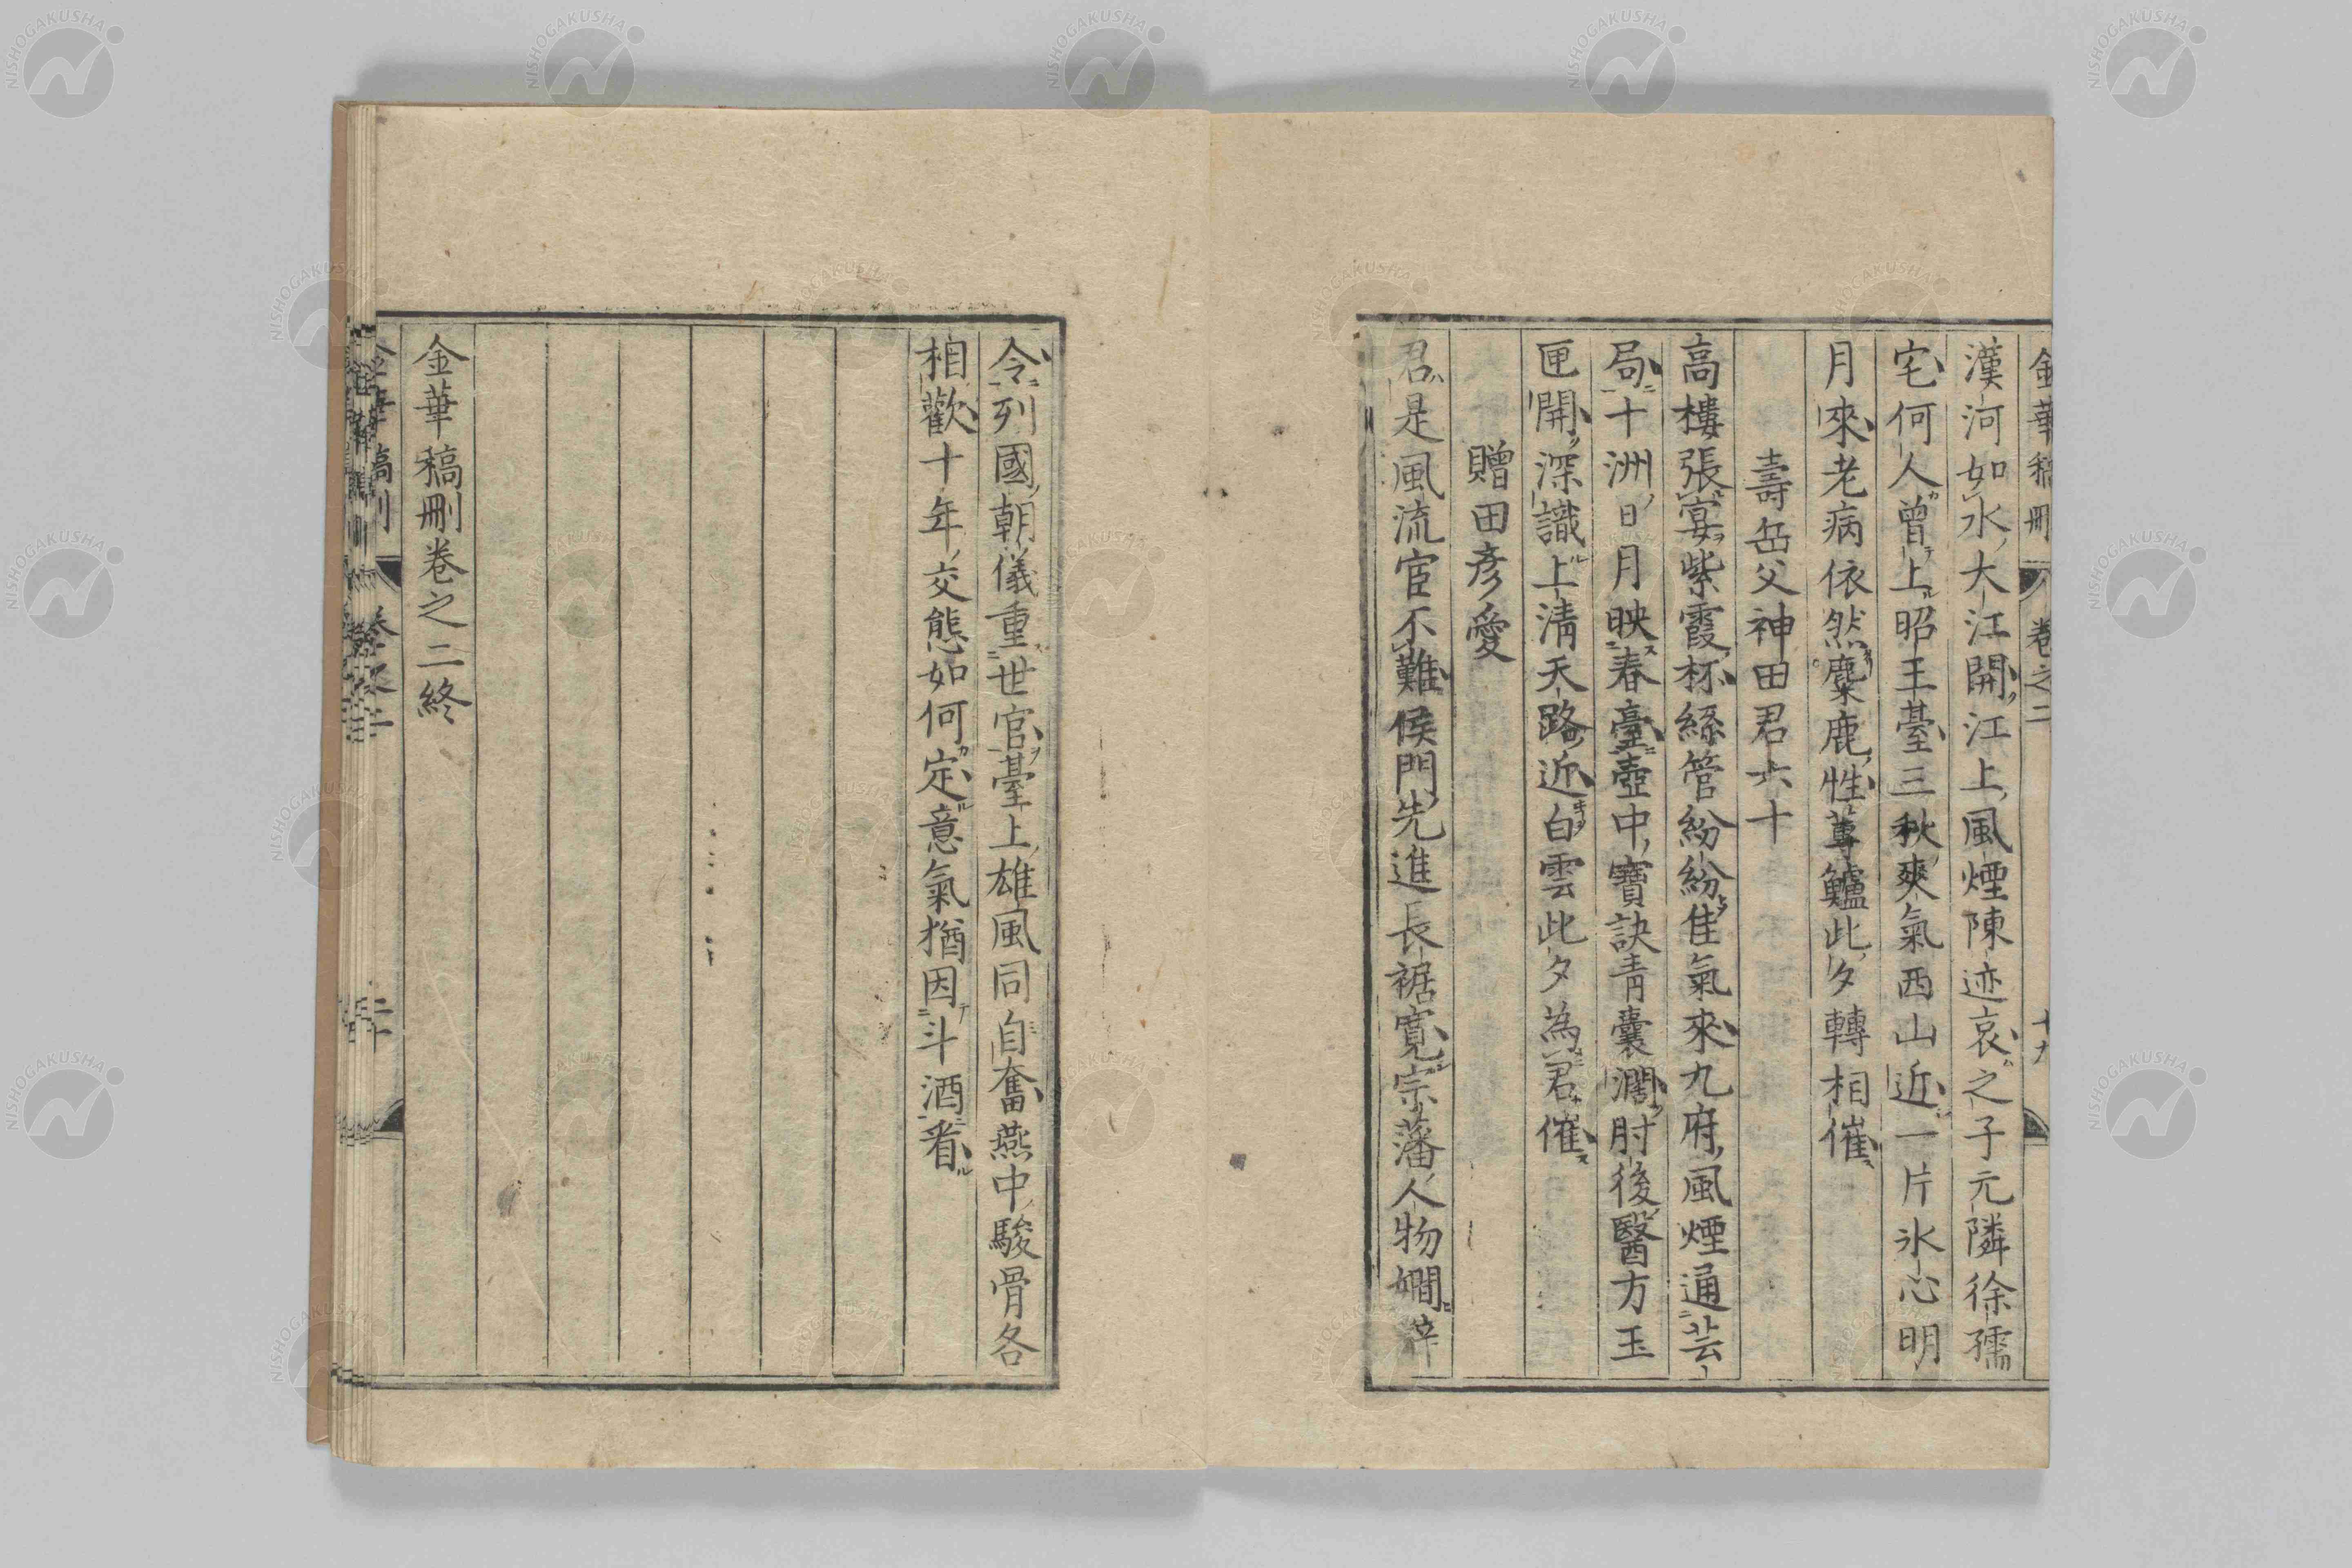 金華稿刪 卷之二 十九
漢河如水大江開江上風煙陳迹哀之子元隣徐孺
宅何人曾上昭王臺三秋爽氣西山近一片氷心明
月來老病依然麋鹿性蓴鱸此夕轉相催
壽岳父神田君六十
高樓張宴紫霞杯絲管紛紛佳氣來九府風煙通芸
局十洲日月映春臺壺中寶訣青囊濶肘後醫方玉
匣開深識上清天路近白雲此夕為君催
贈田彥愛
君是風流宦不難侯門先進長裾寬宗藩人物嫺辭
令列國朝儀重世官臺上雄風同自奮燕中駿骨各
相歡十年交態如何定意氣猶因斗酒看
金華稿刪卷之二終
NISHOGAKUSHA